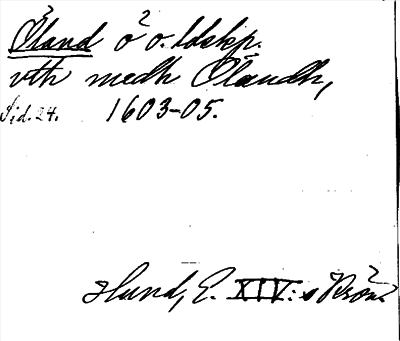 Öland ö o. ldskp.
vth medh Ölandh,
Sid. 24. 1603-05.
Hund, E. XIV:s Krön.